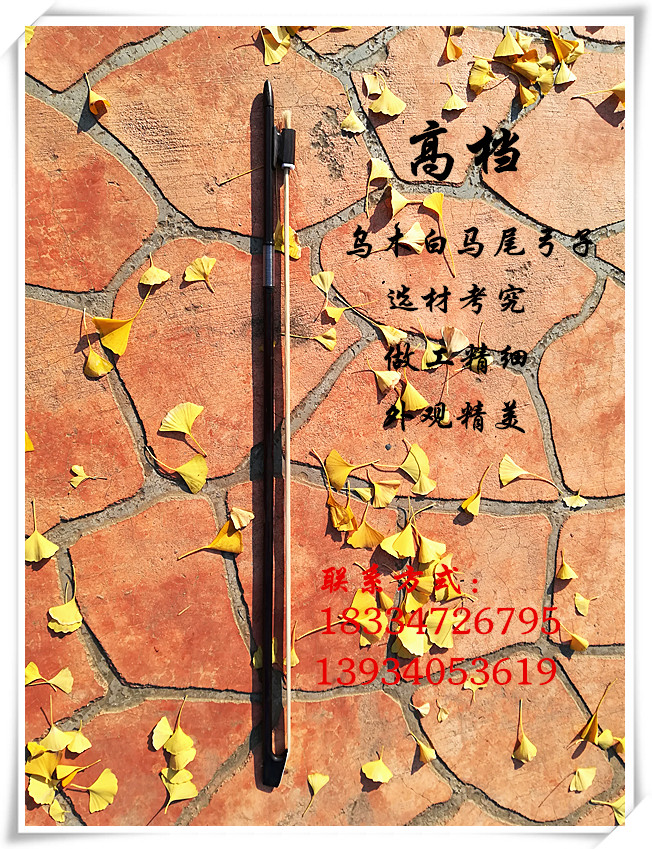 高档
乌木白马尾弓子
选材考究
做工精细
外观精美
联系方式：
18334726795
13934053619